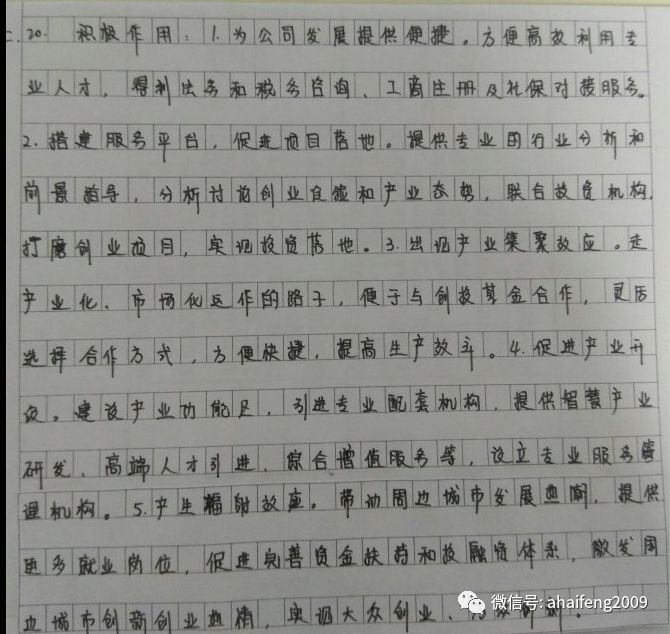 二.20. 积极作用：1.为公司发展提供便捷。方便高效利用专
业人才，得到法务和税务咨询、工商注册及社保对接服务。
2.搭建服务平台，促进项目落地。提供专业的行业分析和
前景指导，分析讨论创业经验和产业态势，联合投资机构，
打磨创业项目，实现投资落地。3.出现产业集聚效应。走
产业化、市场化运作的路子，便于与创投基金合作，灵活
选择合作方式，方便快捷，提高生产效率。4.促进产业开
发。建设产业功能区，引进专业配套机构，提供智慧产业
研发、高端人才引进、综合增值服务等，设立专业服务管
理机构。5.产生辐射效应。带动周边城市发展，提供
更多就业岗位，促进完善资金扶持和投融资体系，激发周
边城市创新创业热情，实现大众创业、万众创新。
微信号: ahaifeng2009